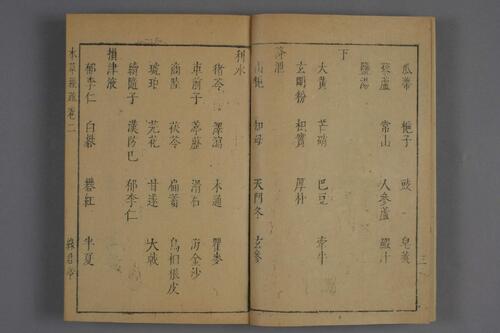 瓜蒂　梔子　豉　皂莢
藜蘆　常山　人參蘆　虀汁
鹽湯
下
大黃　芒硝　巴豆　牽牛
玄明粉　枳實　厚朴
降泄
山梔　知母　天門冬　玄參
三
利水
猪苓　澤瀉　木通　瞿麥
車前子　葶藶　滑石　海金沙
商陸　茯苓　扁蓄　烏桕根皮
琥珀　芫花　甘遂　大戟
續隨子　漢防己　郁李仁
損津液
郁李仁　白礬　礬紅　半夏
本草經疏卷二
綠君亭